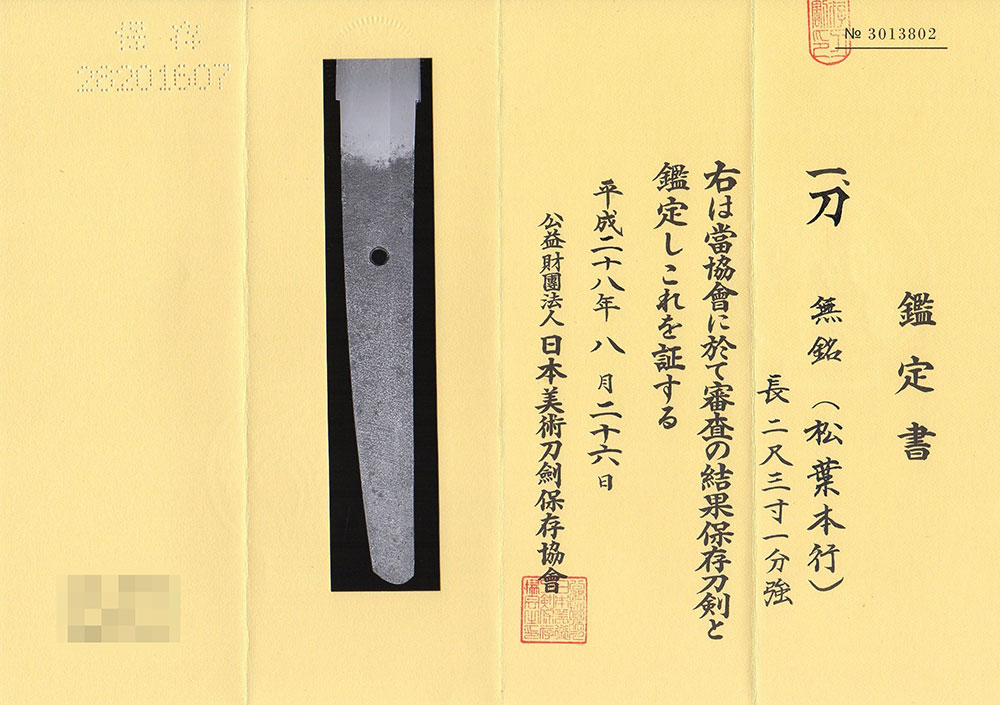 № 3013802
鑑定書
一、刀 無銘（松葉本行）
長二尺三寸一分強
右は當協會に於て審査の結果保存刀剣と
鑑定しこれを証する
平成二十八年八月二十六日
公益財團法人日本美術刀劍保存協會
保存
28201607